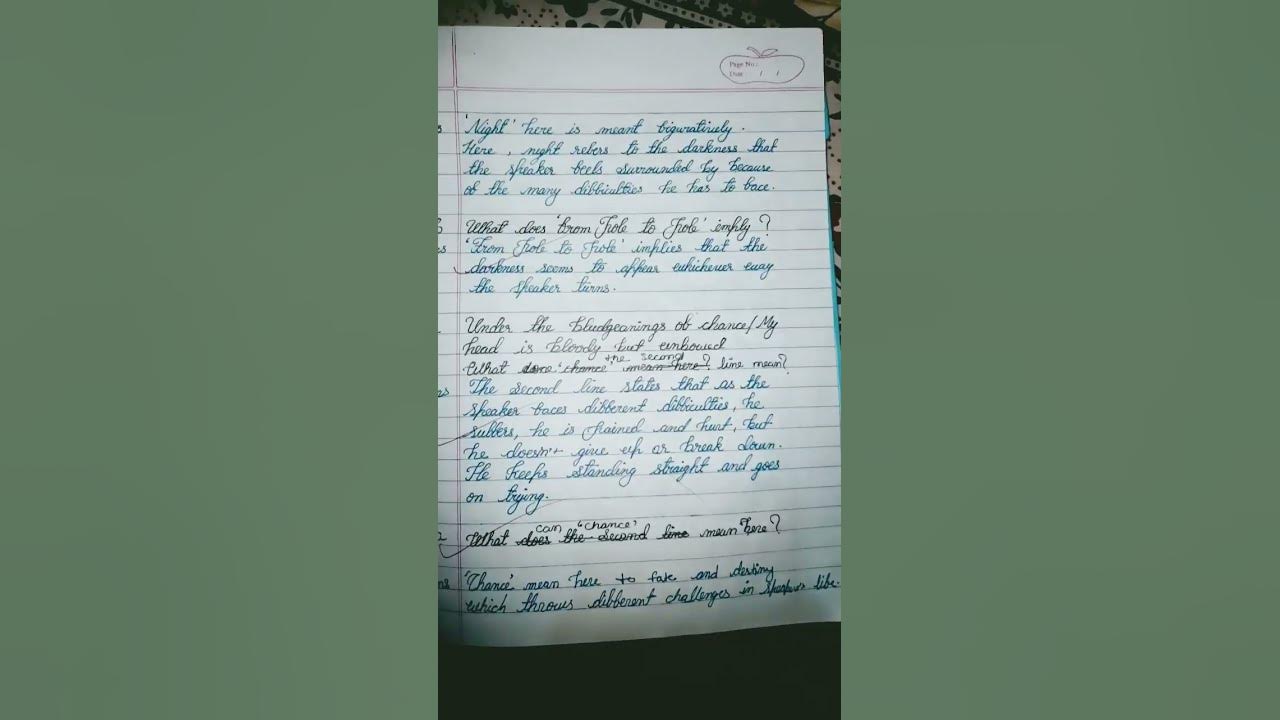 Page No.:
Date / /
s 'Night' here is meant figuratively.
Here, night refers to the darkness that
the speaker feels surrounded by because
of the many difficulties he has to face.
3 What does 'from Pole to Pole' imply?
ns 'From Pole to Pole' implies that the
darkness seems to appear whichever way
the speaker turns.
Under the bludgeonings of chance/ My
head is bloody but unbowed
What the second line mean?
ns The second line states that as the
speaker faces different difficulties, he
suffers, he is pained and hurt, but
he doesn't give up or break down.
He keeps standing straight and goes
on trying.
2 What can 'chance' mean here?
ns 'Chance' mean here to fate and destiny
which throws different challenges in speaker's life.